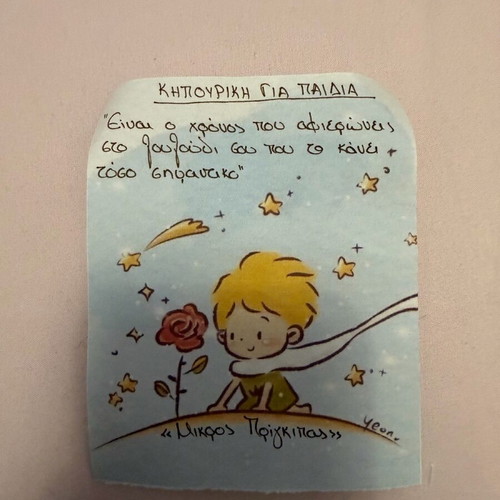 ΚΗΠΟΥΡΙΚΗ ΓΙΑ ΠΑΙΔΙΑ
"Είναι ο χρόνος που αφιερώνεις
στο λουλούδι σου που το κάνει
τόσο σημαντικό"
«Μικρος Πρίγκιπας»